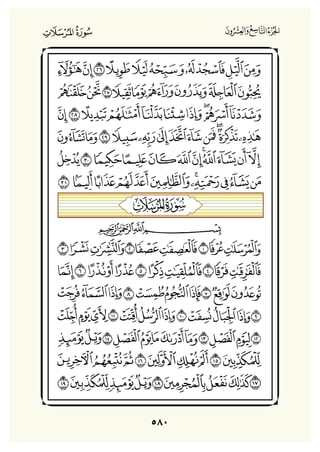 الجُزْءُ التَّاسِعُ وَالعِشْرُونَ
سُورَةُ المُرْسَلَاتِ
وَمِنَ ٱلَّيْلِ فَٱسْجُدْ لَهُۥ وَسَبِّحْهُ لَيْلًا طَوِيلًا ٢٦ إِنَّ هَٰٓؤُلَآءِ
يُحِبُّونَ ٱلْعَاجِلَةَ وَيَذَرُونَ وَرَآءَهُمْ يَوْمًا ثَقِيلًا ٢٧ نَّحْنُ خَلَقْنَٰهُمْ
وَشَدَدْنَآ أَسْرَهُمْ ۖ وَإِذَا شِئْنَا بَدَّلْنَآ أَمْثَٰلَهُمْ تَبْدِيلًا ٢٨ إِنَّ
هَٰذِهِۦ تَذْكِرَةٌ ۖ فَمَن شَآءَ ٱتَّخَذَ إِلَىٰ رَبِّهِۦ سَبِيلًا ٢٩ وَمَا تَشَآءُونَ
إِلَّآ أَن يَشَآءَ ٱللَّهُ ۚ إِنَّ ٱللَّهَ كَانَ عَلِيمًا حَكِيمًا ٣٠ يُدْخِلُ
مَن يَشَآءُ فِى رَحْمَتِهِۦ ۚ وَٱلظَّٰلِمِينَ أَعَدَّ لَهُمْ عَذَابًا أَلِيمًۢا ٣١
سُورَةُ المُرْسَلَاتِ
بِسْمِ ٱللَّهِ ٱلرَّحْمَٰنِ ٱلرَّحِيمِ
وَٱلْمُرْسَلَٰتِ عُرْفًا ١ فَٱلْعَٰصِفَٰتِ عَصْفًا ٢ وَٱلنَّٰشِرَٰتِ نَشْرًا ٣
فَٱلْفَٰرِقَٰتِ فَرْقًا ٤ فَٱلْمُلْقِيَٰتِ ذِكْرًا ٥ عُذْرًا أَوْ نُذْرًا ٦ إِنَّمَا
تُوعَدُونَ لَوَٰقِعٌ ٧ فَإِذَا ٱلنُّجُومُ طُمِسَتْ ٨ وَإِذَا ٱلسَّمَآءُ فُرِجَتْ
٩ وَإِذَا ٱلْجِبَالُ نُسِفَتْ ١٠ وَإِذَا ٱلرُّسُلُ أُقِّتَتْ ١١ لِأَىِّ يَوْمٍ أُجِّلَتْ
١٢ لِيَوْمِ ٱلْفَصْلِ ١٣ وَمَآ أَدْرَىٰكَ مَا يَوْمُ ٱلْفَصْلِ ١٤ وَيْلٌ يَوْمَئِذٍ
لِّلْمُكَذِّبِينَ ١٥ أَلَمْ نُهْلِكِ ٱلْأَوَّلِينَ ١٦ ثُمَّ نُتْبِعُهُمُ ٱلْءَاخِرِينَ
١٧ كَذَٰلِكَ نَفْعَلُ بِٱلْمُجْرِمِينَ ١٨ وَيْلٌ يَوْمَئِذٍ لِّلْمُكَذِّبِينَ ١٩
٥٨٠